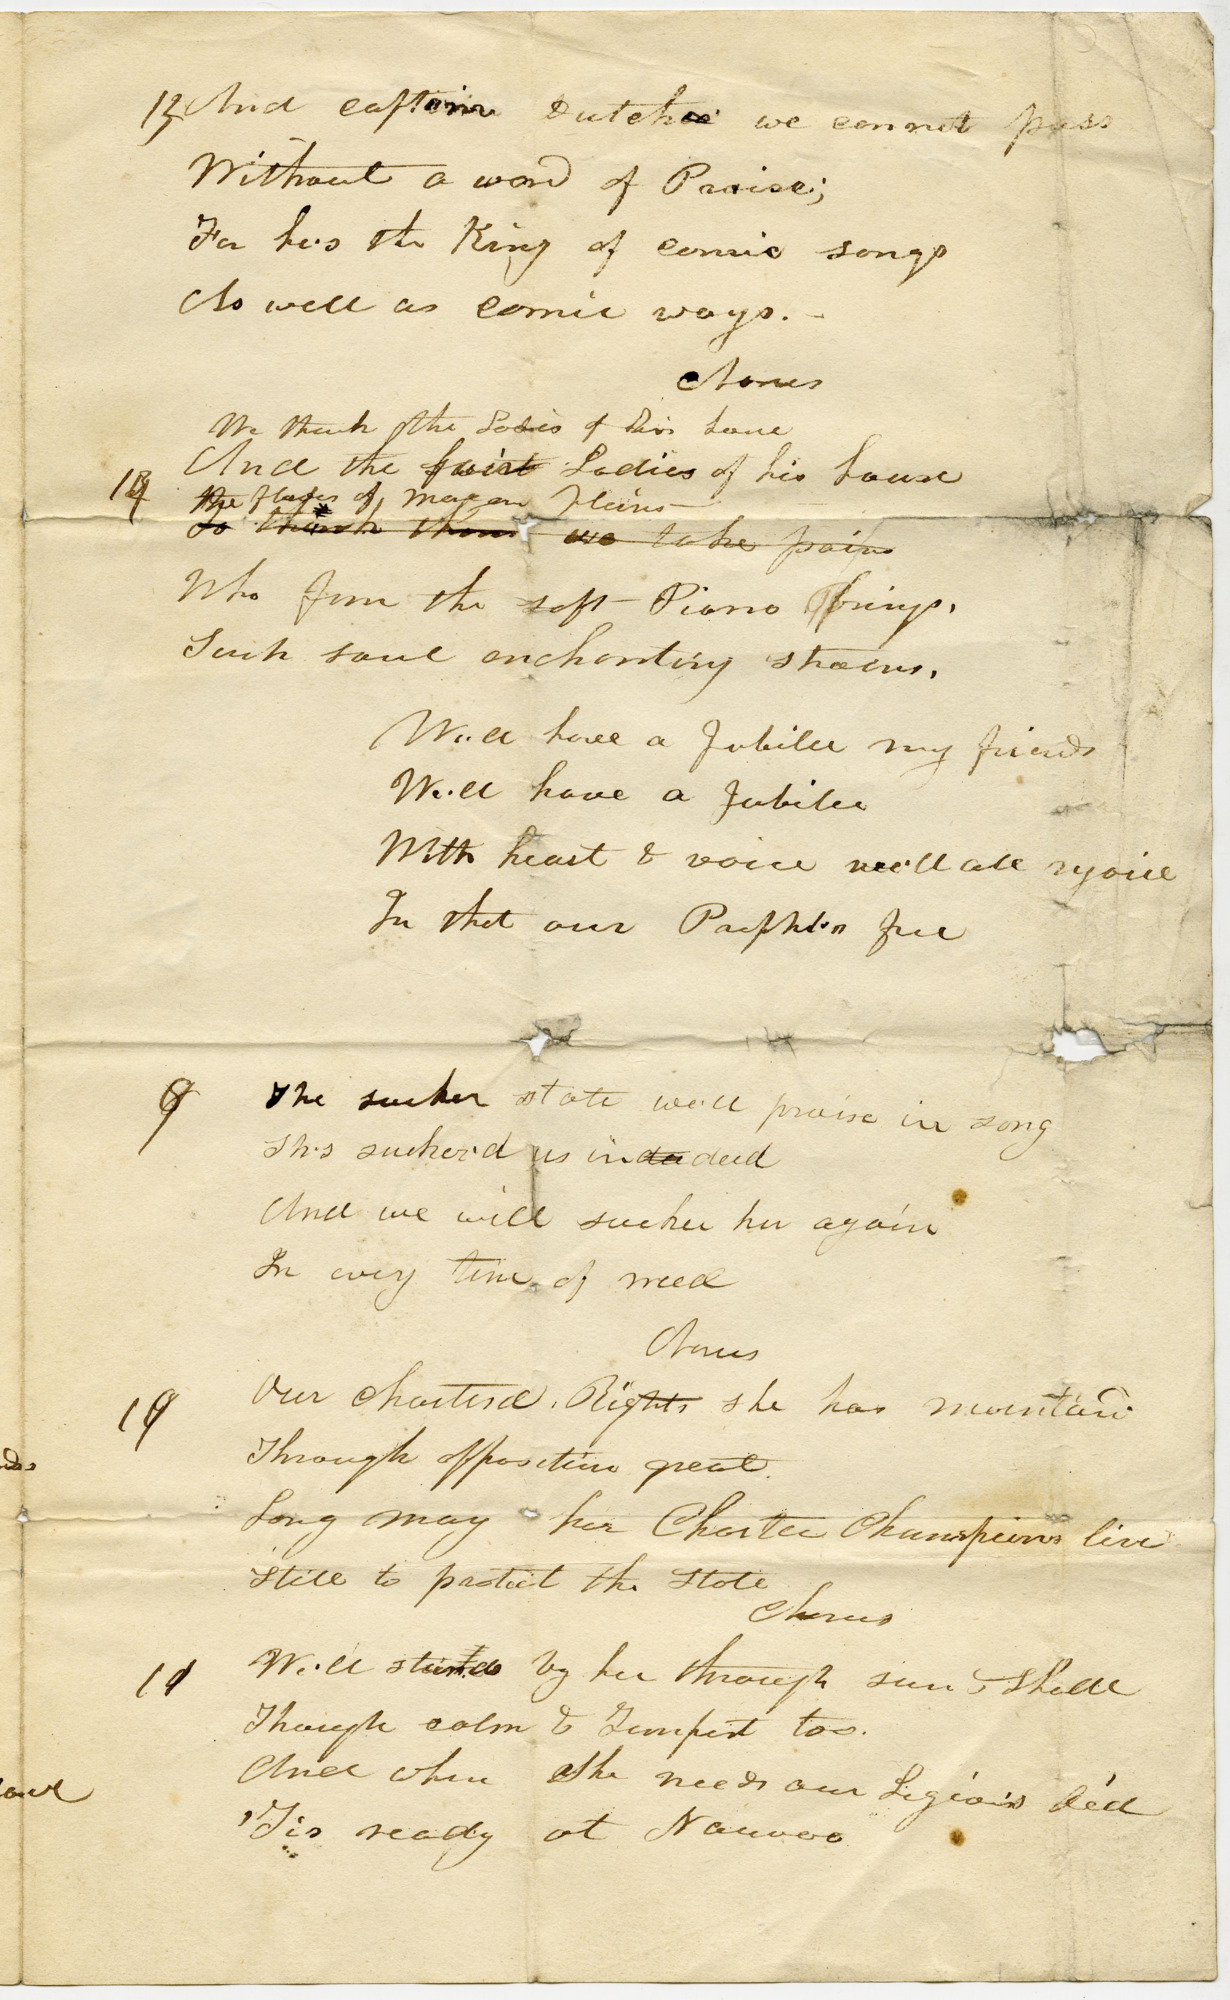 13 And captain Dutch we connot pass
Without a word of Praise;
For he's the King of comic songs
As well as comic ways. -
Chorus
We thank the Ladies of his house
And the fairst Ladies of his house
14
The flutes of, magan plains
To thank them we take pains
Who from the soft Piano brings,
Such soul enchanting strains.
We'll have a Jubilee my friends
We'll have a Jubilee
With heart & voice we'll all rejoice
In that our Prophet's free
9 The sucker state we'll praise in song
She's sucker'd us in de deed
And we will sucker her again
In every time of need
Chorus
10 Our charterd. Rights she has mantain
Through opposition great.
Long may her Charter Champions live
Still to protect the State
Chorus
11 We'll stand by her through sun & Shade
Through calm & Tempest too.
And when She needs our Legion's aid
'Tis ready at Nauvoo